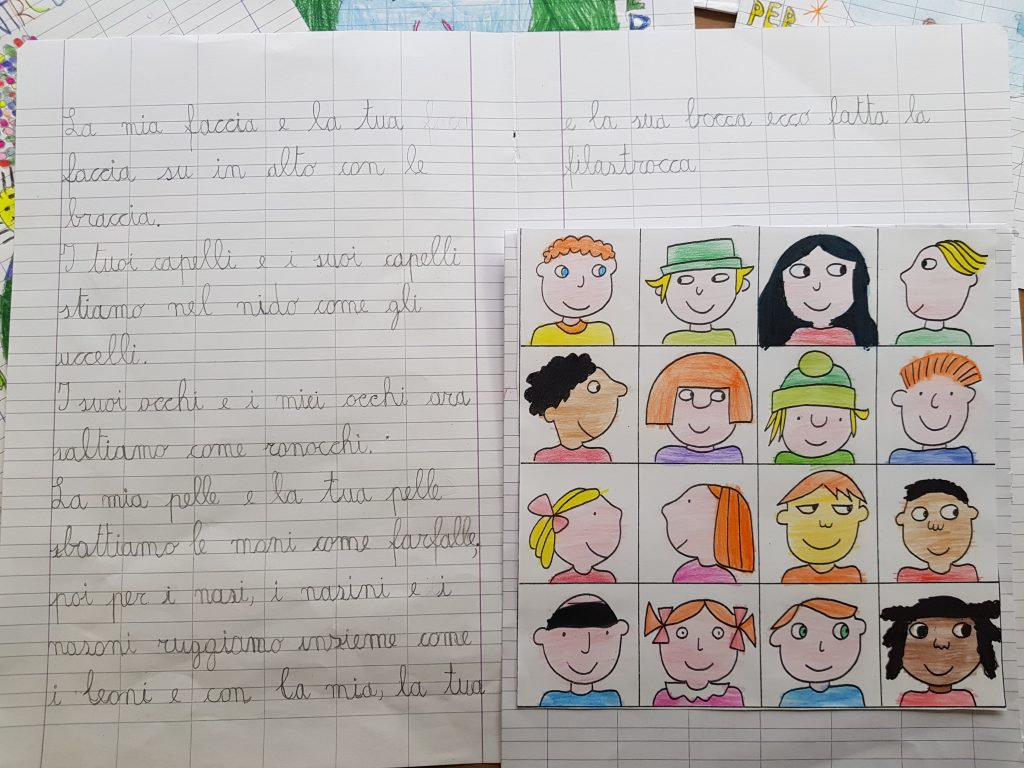 La mia faccia e la tua
faccia su in alto con le
braccia.
I tuoi capelli e i suoi capelli
stiamo nel nido come gli
uccelli.
I suoi occhi e i miei occhi ora
saltiamo come ranocchi.
La mia pelle e la tua pelle
sbattiamo le mani come farfalle,
poi per i nasi, i nasini e i
nasoni ruggiamo insieme come
i leoni e con la mia, la tua
e la sua bocca ecco fatta la
filastrocca
PER